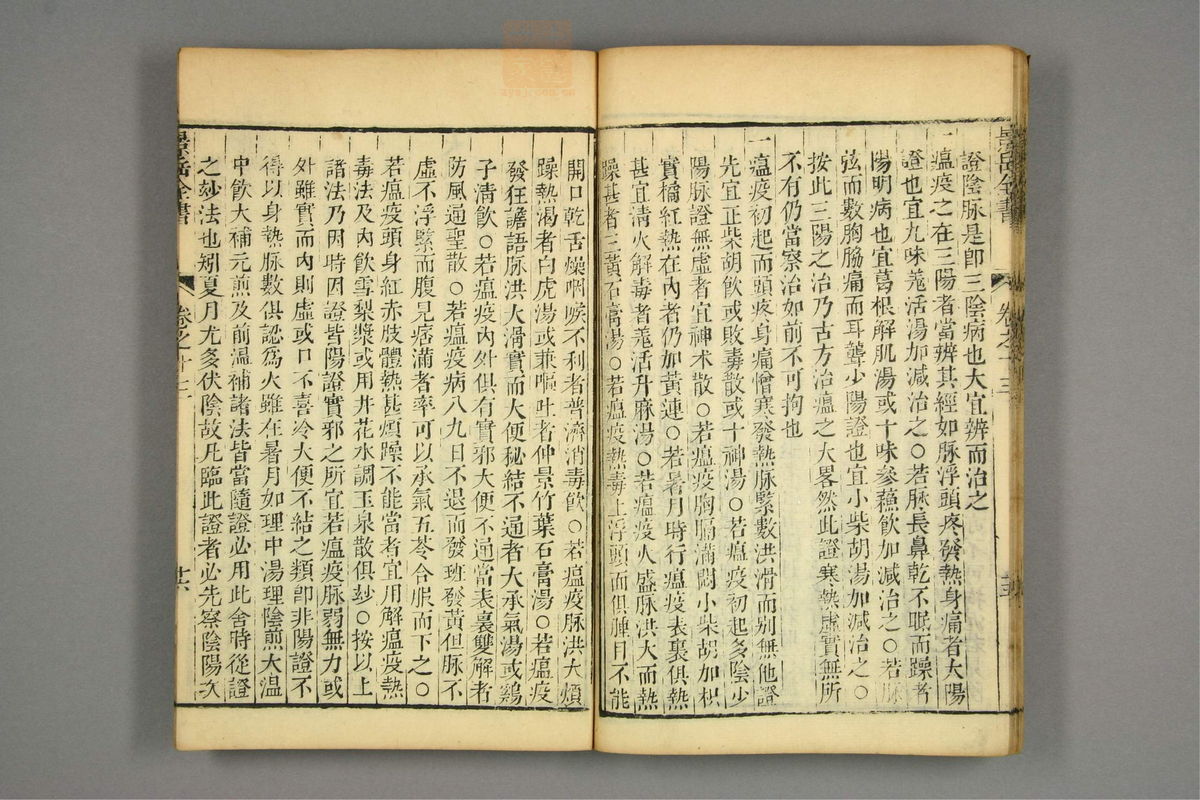 景岳全書
證陰脉是卽三陰病也大宜辨而治之
一瘟疫之在三陽者當辨其經如脉浮頭疼發熱身痛者太陽
證也宜九味羗活湯加減治之○若脉長鼻乾不眠而躁者
陽明病也宜葛根解肌湯或十味參蘓飲加減治之○若脉
弦而數胸脇痛而耳聾少陽證也宜小柴胡湯加減治之○
按此三陽之治乃古方治瘟之大畧然此證寒熱虛實無所
不有仍當察治如前不可拘也
一瘟疫初起而頭疼身痛憎寒發熱脉緊數洪滑而别無他證
先宜正柴胡飲或敗毒散或十神湯○若瘟疫初起多陰少
陽脉證無虛者宜神术散○若瘟疫胸膈滿悶小柴胡加枳
實橘紅熱在內者仍加黃連○若暑月時行瘟疫表裏俱熱
甚宜清火解毒者羗活升麻湯○若瘟疫火盛脉洪大而熱
躁甚者三黃石膏湯○若瘟疫熱毒上浮頭面俱腫目不能
開口乾舌燥咽喉不利者普濟消毒飲○若瘟疫脉洪大煩
躁熱渴者白虎湯或兼嘔吐者仲景竹葉石膏湯○若瘟疫
發狂譫語脉洪大滑實而大便秘結不通者大承氣湯或鷄
子清飲○若瘟疫內外俱有實邪大便不通當表裏雙解者
防風通聖散○若瘟疫病八九日不退而發班發黃但脉不
虛不浮緊而腹見痞滿者率可以承氣五苓合服而下之○
若瘟疫頭身紅赤肢體熱甚煩躁不能當者宜用解瘟疫熱
毒法及內飲雪梨漿或用井花水調玉泉散俱玅○按以上
諸法乃因時因證皆陽證實邪之所宜若瘟疫脉弱無力或
外雖實而內則虛或口不喜冷大便不結之類卽非陽證不
得以身熱脉數俱認爲火雖在暑月如理中湯理陰煎大溫
中飲大補元煎及前溫補諸法皆當隨證必用此舍時從證
之玅法也矧夏月尤多伏陰故凡臨此證者必先察陰陽次
景岳全書
卷之十三
廿六